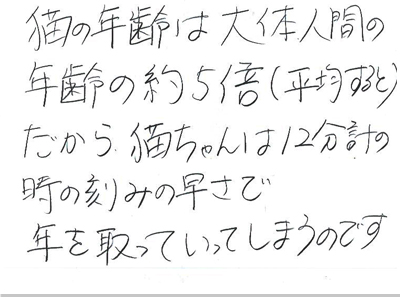 猫の年齢は大体人間の
年齢の約5倍(平均すると)
だから猫ちゃんは12分計の
時の刻みの早さで
年を取っていってしまうのです